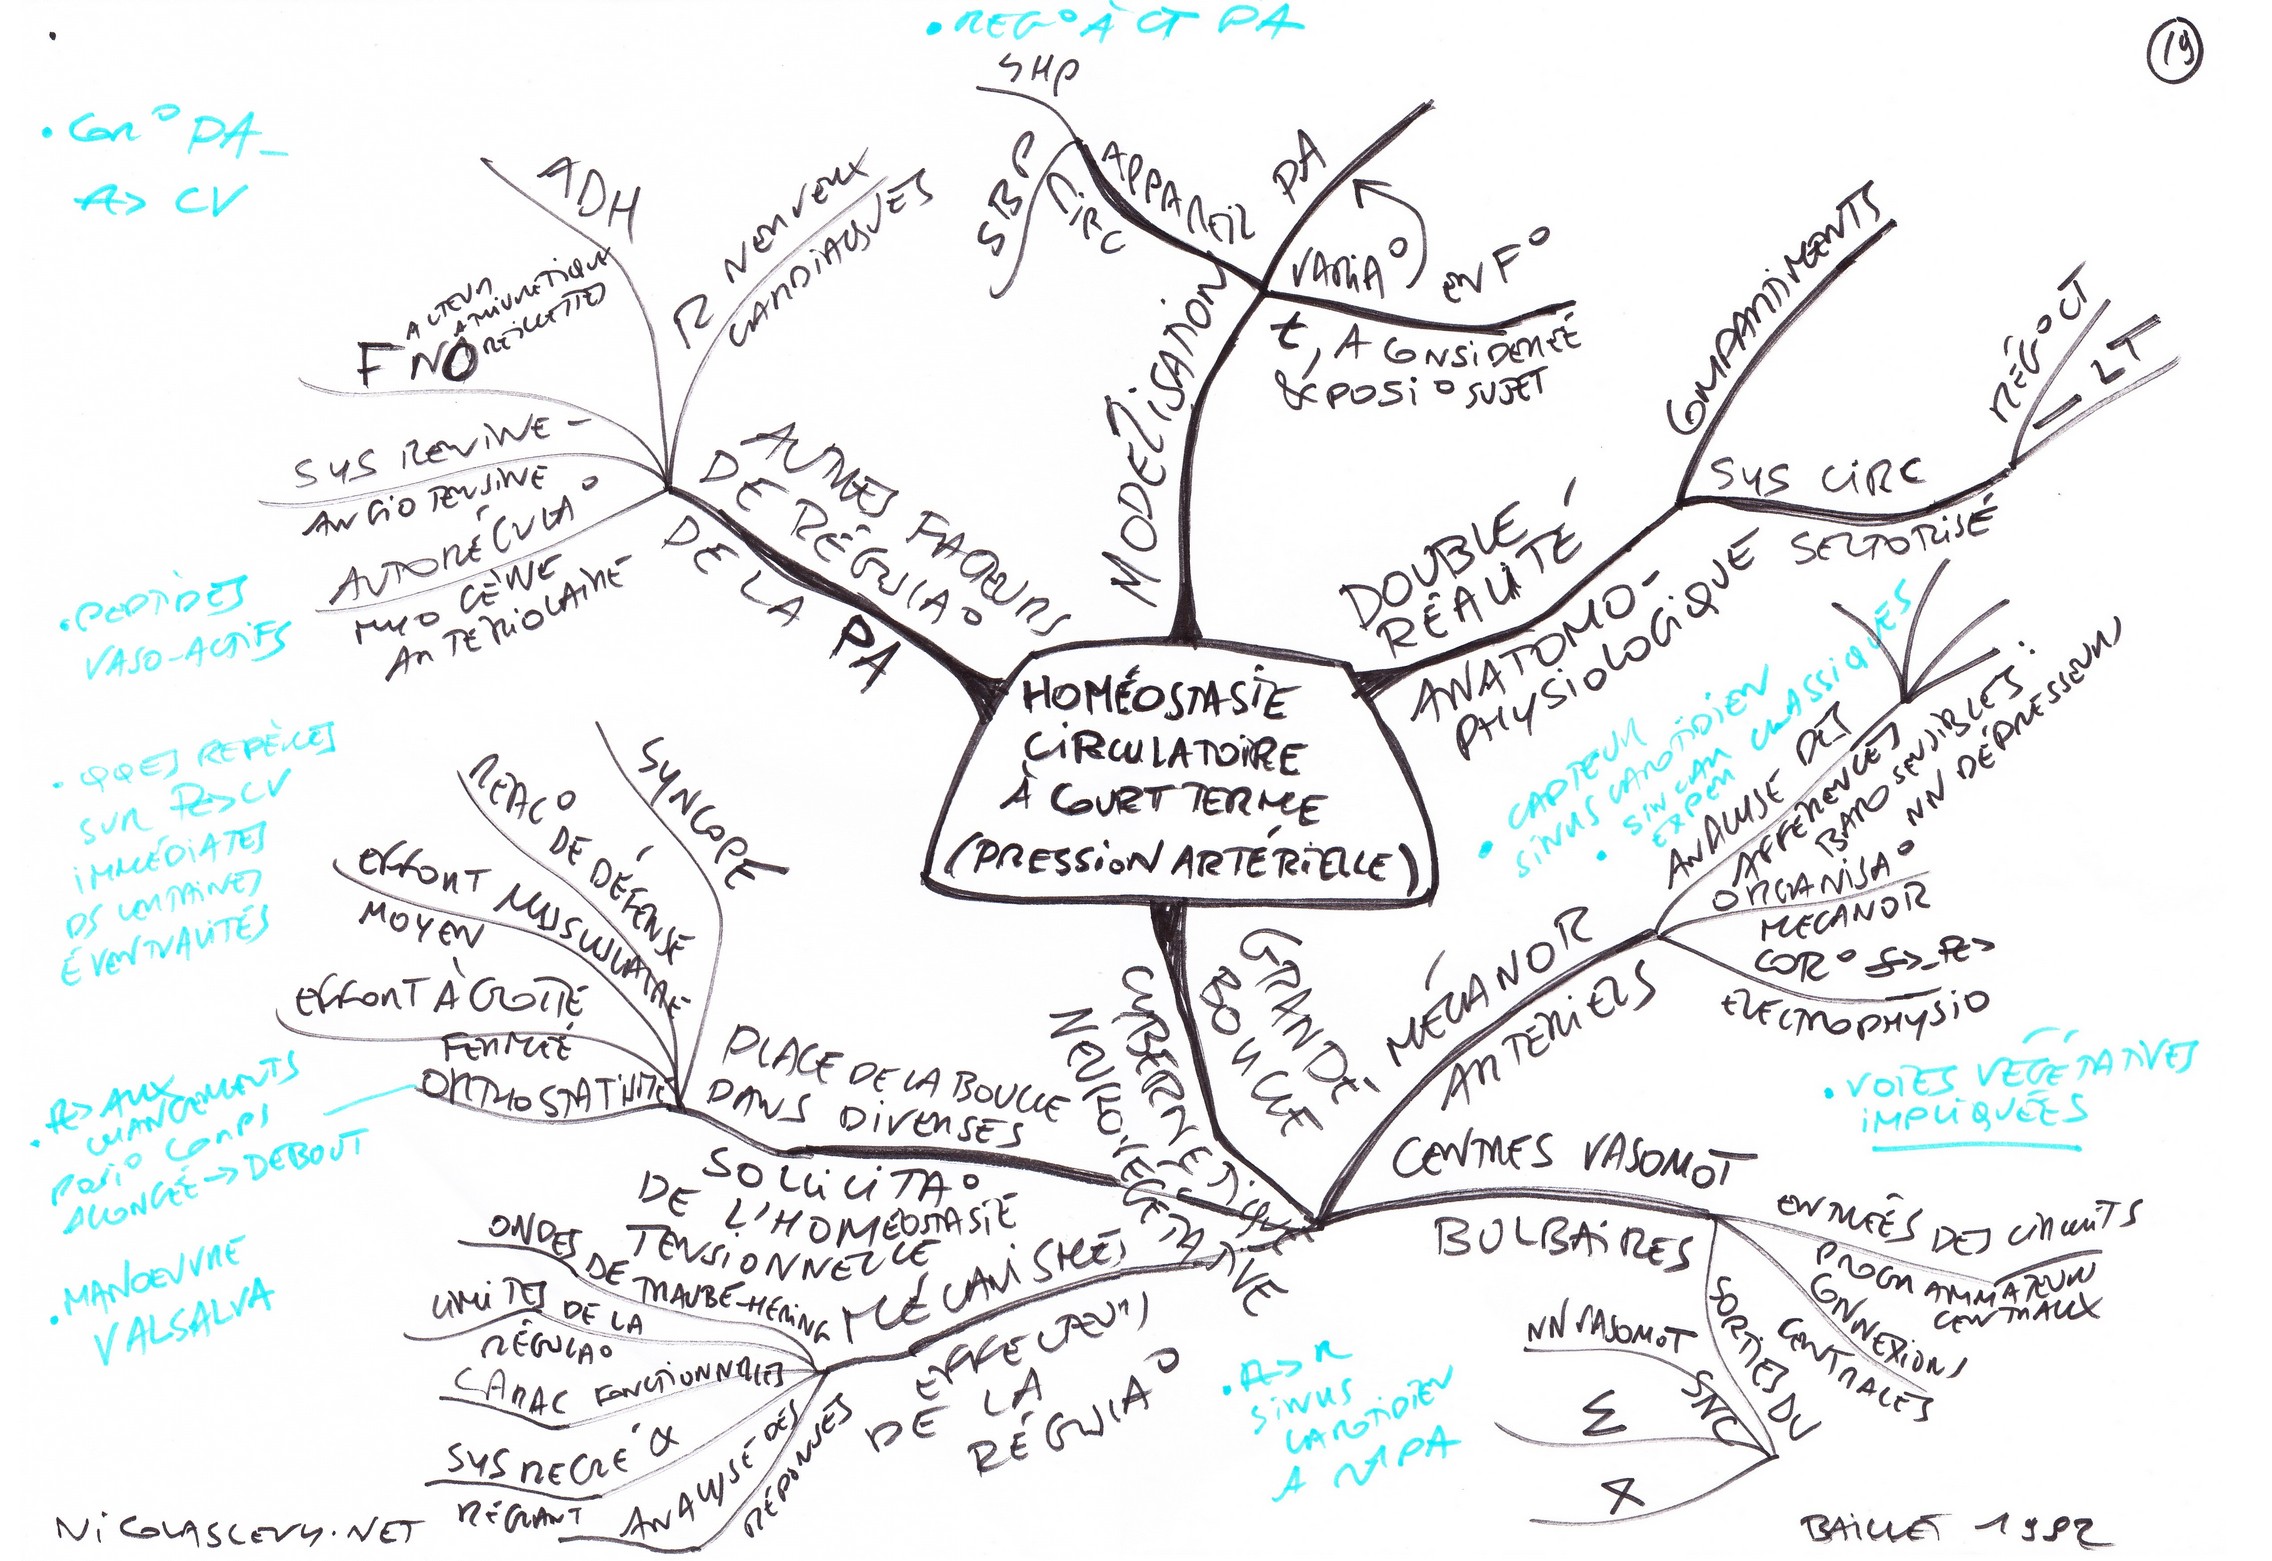 • REG° À CT PA
19
• COR° PA_
R> CV
SHP
SBP
APPAREIL
CIRC
PA
VARIA° EN F°
t, A CONSIDERÉE
& POSI° SUJET
MODELISATION
ADH
R NERVEUX
CARDIAQUES
FNO
FACTEUR
NATRIURÉTIQUE
OREILLETTES
SYS RENINE-
ANGIOTENSINE
AUTORÉGULA°
MYOGÈNE
ARTERIOLAIRE
AUTRES FACTEURS
DE RÉGULA°
DE LA PA
COMPARTIMENTS
RÉG° CT
— LT
SYS CIRC
SECTORISÉ
DOUBLE
RÉALITÉ
ANATOMO-
PHYSIOLOGIQUE
• PEPTIDES
VASO-ACTIFS
HOMÉOSTASIE
CIRCULATOIRE
À COURT TERME
(PRESSION ARTÉRIELLE)
• CAPTEUR
SINUS CAROTIDIEN
• SINCAR CLASSIQUES
EXPER
ANALYSE DES
AFFERENCES
BAROSENSIBLES:
NN DÉPRESSEURS
ORGANISA°
MECANOR
COR°
ELECTROPHYSIO
MÉCANOR
ARTERIELS
• QQES REPÈRES
SUR R>CV
IMMÉDIATES
DS CERTAINES
ÉVENTUALITÉS
SYNCOPE
REAC° DE DÉFENSE
EFFORT MUSCULAIRE
MOYEN
EFFORT À GLOTTE
FERMÉE
ORTHOSTATISME
PLACE DE LA BOUCLE
DANS DIVERSES
SOLLICITA°
DE L'HOMÉOSTASIE
TENSIONNELLE
GRANDE
BOUCLE
CYBERNETIQUE
NEURO-VEGETATIVE
• R> AUX
CHANGEMENTS
POSI° CORPS
ALONGÉE → DEBOUT
• MANOEUVRE
VALSALVA
• VOIES VÉGÉTATIVES
IMPLIQUÉES
CENTRES VASOMOT
BULBAIRES
ENTRÉES DES CIRCUITS
PROGRAMMATEUR
CENTRAUX
CONNEXIONS
CENTRALES
SORTIES DU
SNC
NN VASOMOT
Σ
X
ONDES
DE TRAUBE-HERING
LIMITES DE LA
RÉGULA°
CARAC FONCTIONNELLES
SYS REGLÉ &
RÉGLANT
ANALYSE DES
RÉPONSES
MÉCANISMES
EFFECTEURS
DE LA
RÉGULA°
• R> R
SINUS
CAROTIDIEN
PA
NICOLASLEVY.NET
BAILLET 1992